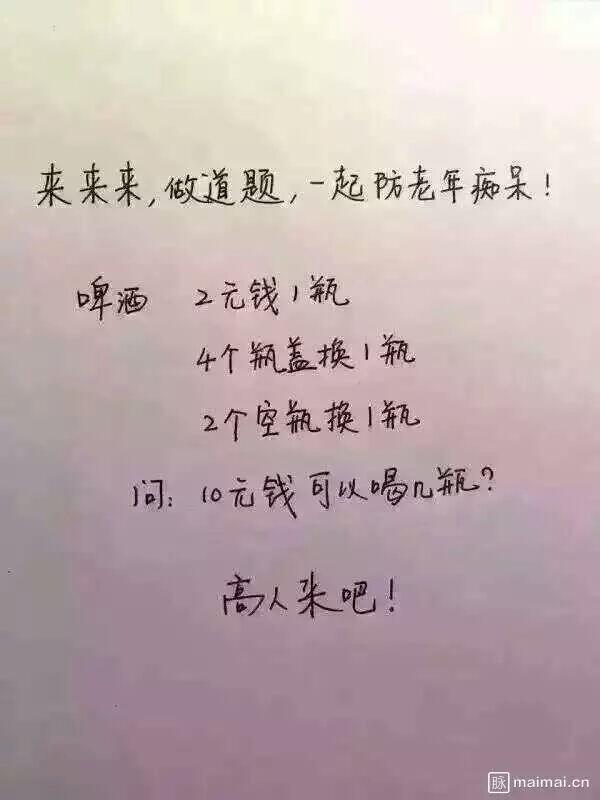 来来来,做道题,一起防老年痴呆!
啤酒 2元钱1瓶
4个瓶盖换1瓶
2个空瓶换1瓶
问:10元钱可以喝几瓶?
高人来吧!
脉 maimai.cn